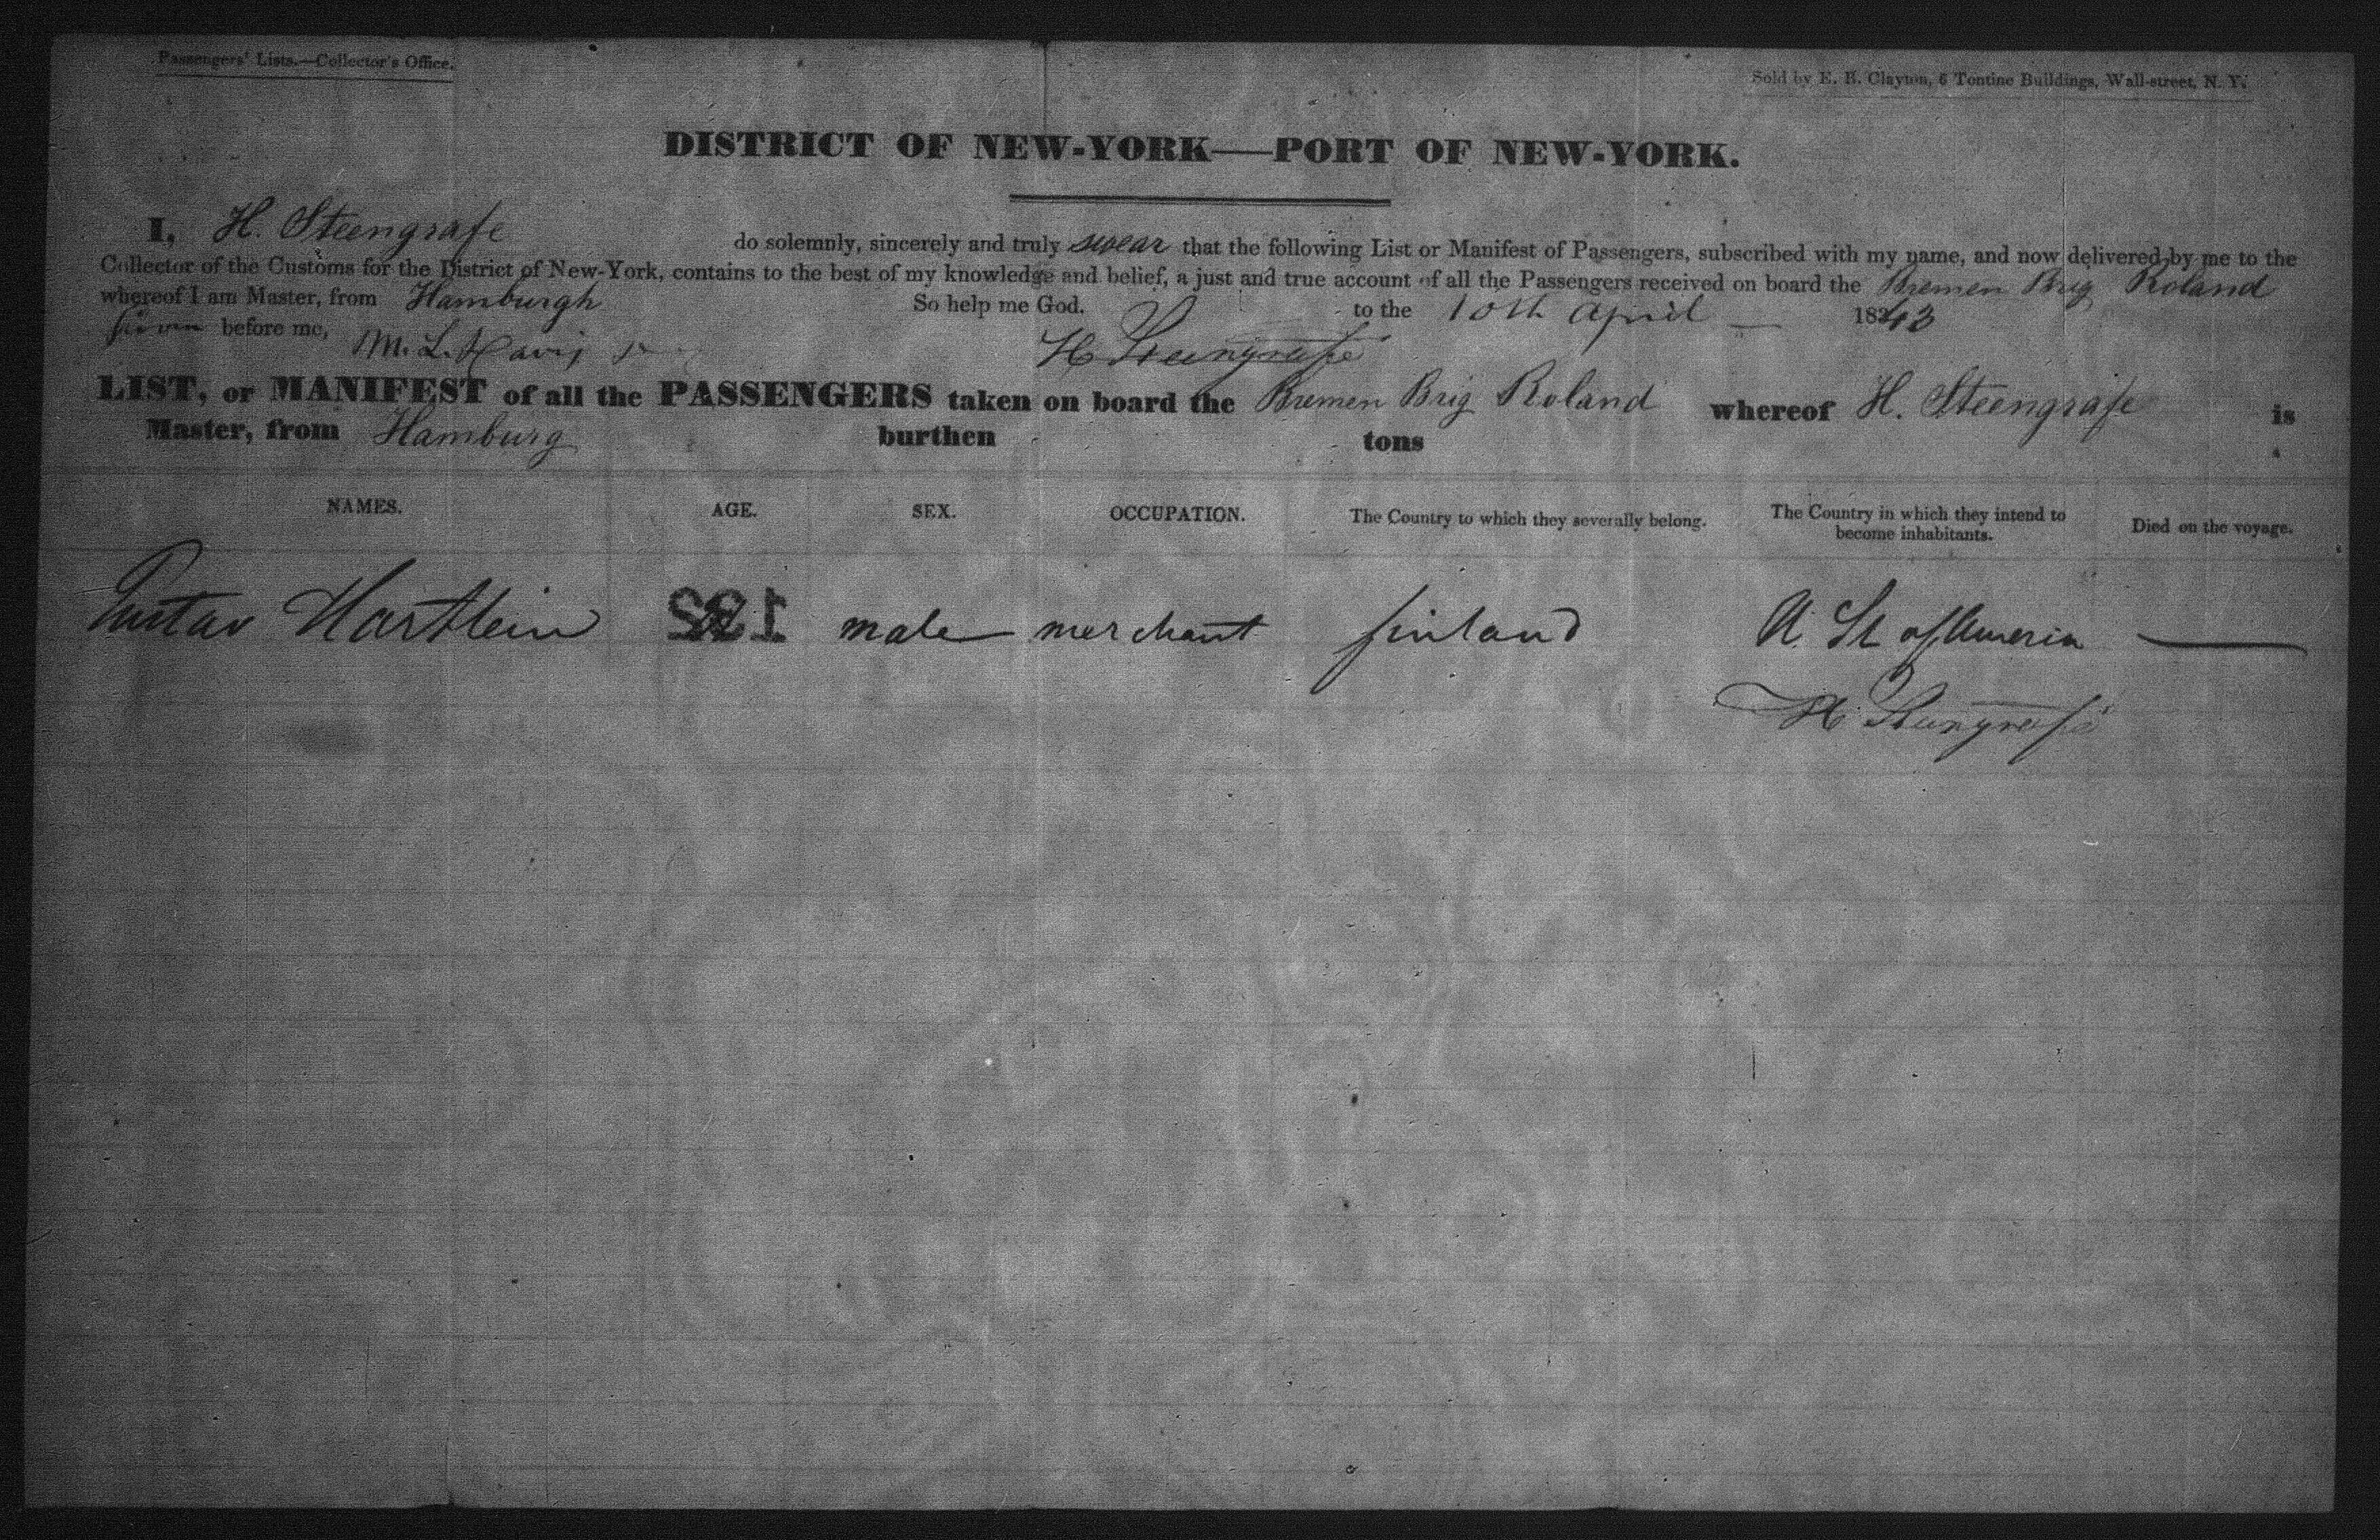 Passengers' Lists.—Collector's Office.
Sold by E. B. Clayton, 6 Tontine Buildings, Wall-street, N. Y.
DISTRICT OF NEW-YORK—PORT OF NEW-YORK.
I, H. Steengrafe do solemnly, sincerely and truly swear that the following List or Manifest of Passengers, subscribed with my name, and now delivered by me to the
Collector of the Customs for the District of New-York, contains to the best of my knowledge and belief, a just and true account of all the Passengers received on board the Bremen Brig Roland
whereof I am Master, from Hamburgh So help me God. to the 10th April 1843
Sworn before me, M. L. Davis H Steengrafe
LIST, or MANIFEST of all the PASSENGERS taken on board the Bremen Brig Roland whereof H. Steengrafe is
Master, from Hamburg burthen tons
NAMES. AGE. SEX. OCCUPATION. The Country to which they severally belong. The Country in which they intend to become inhabitants. Died on the voyage.
Gustav Hartlein male merchant finland U. St of America —
H. Steengrafe